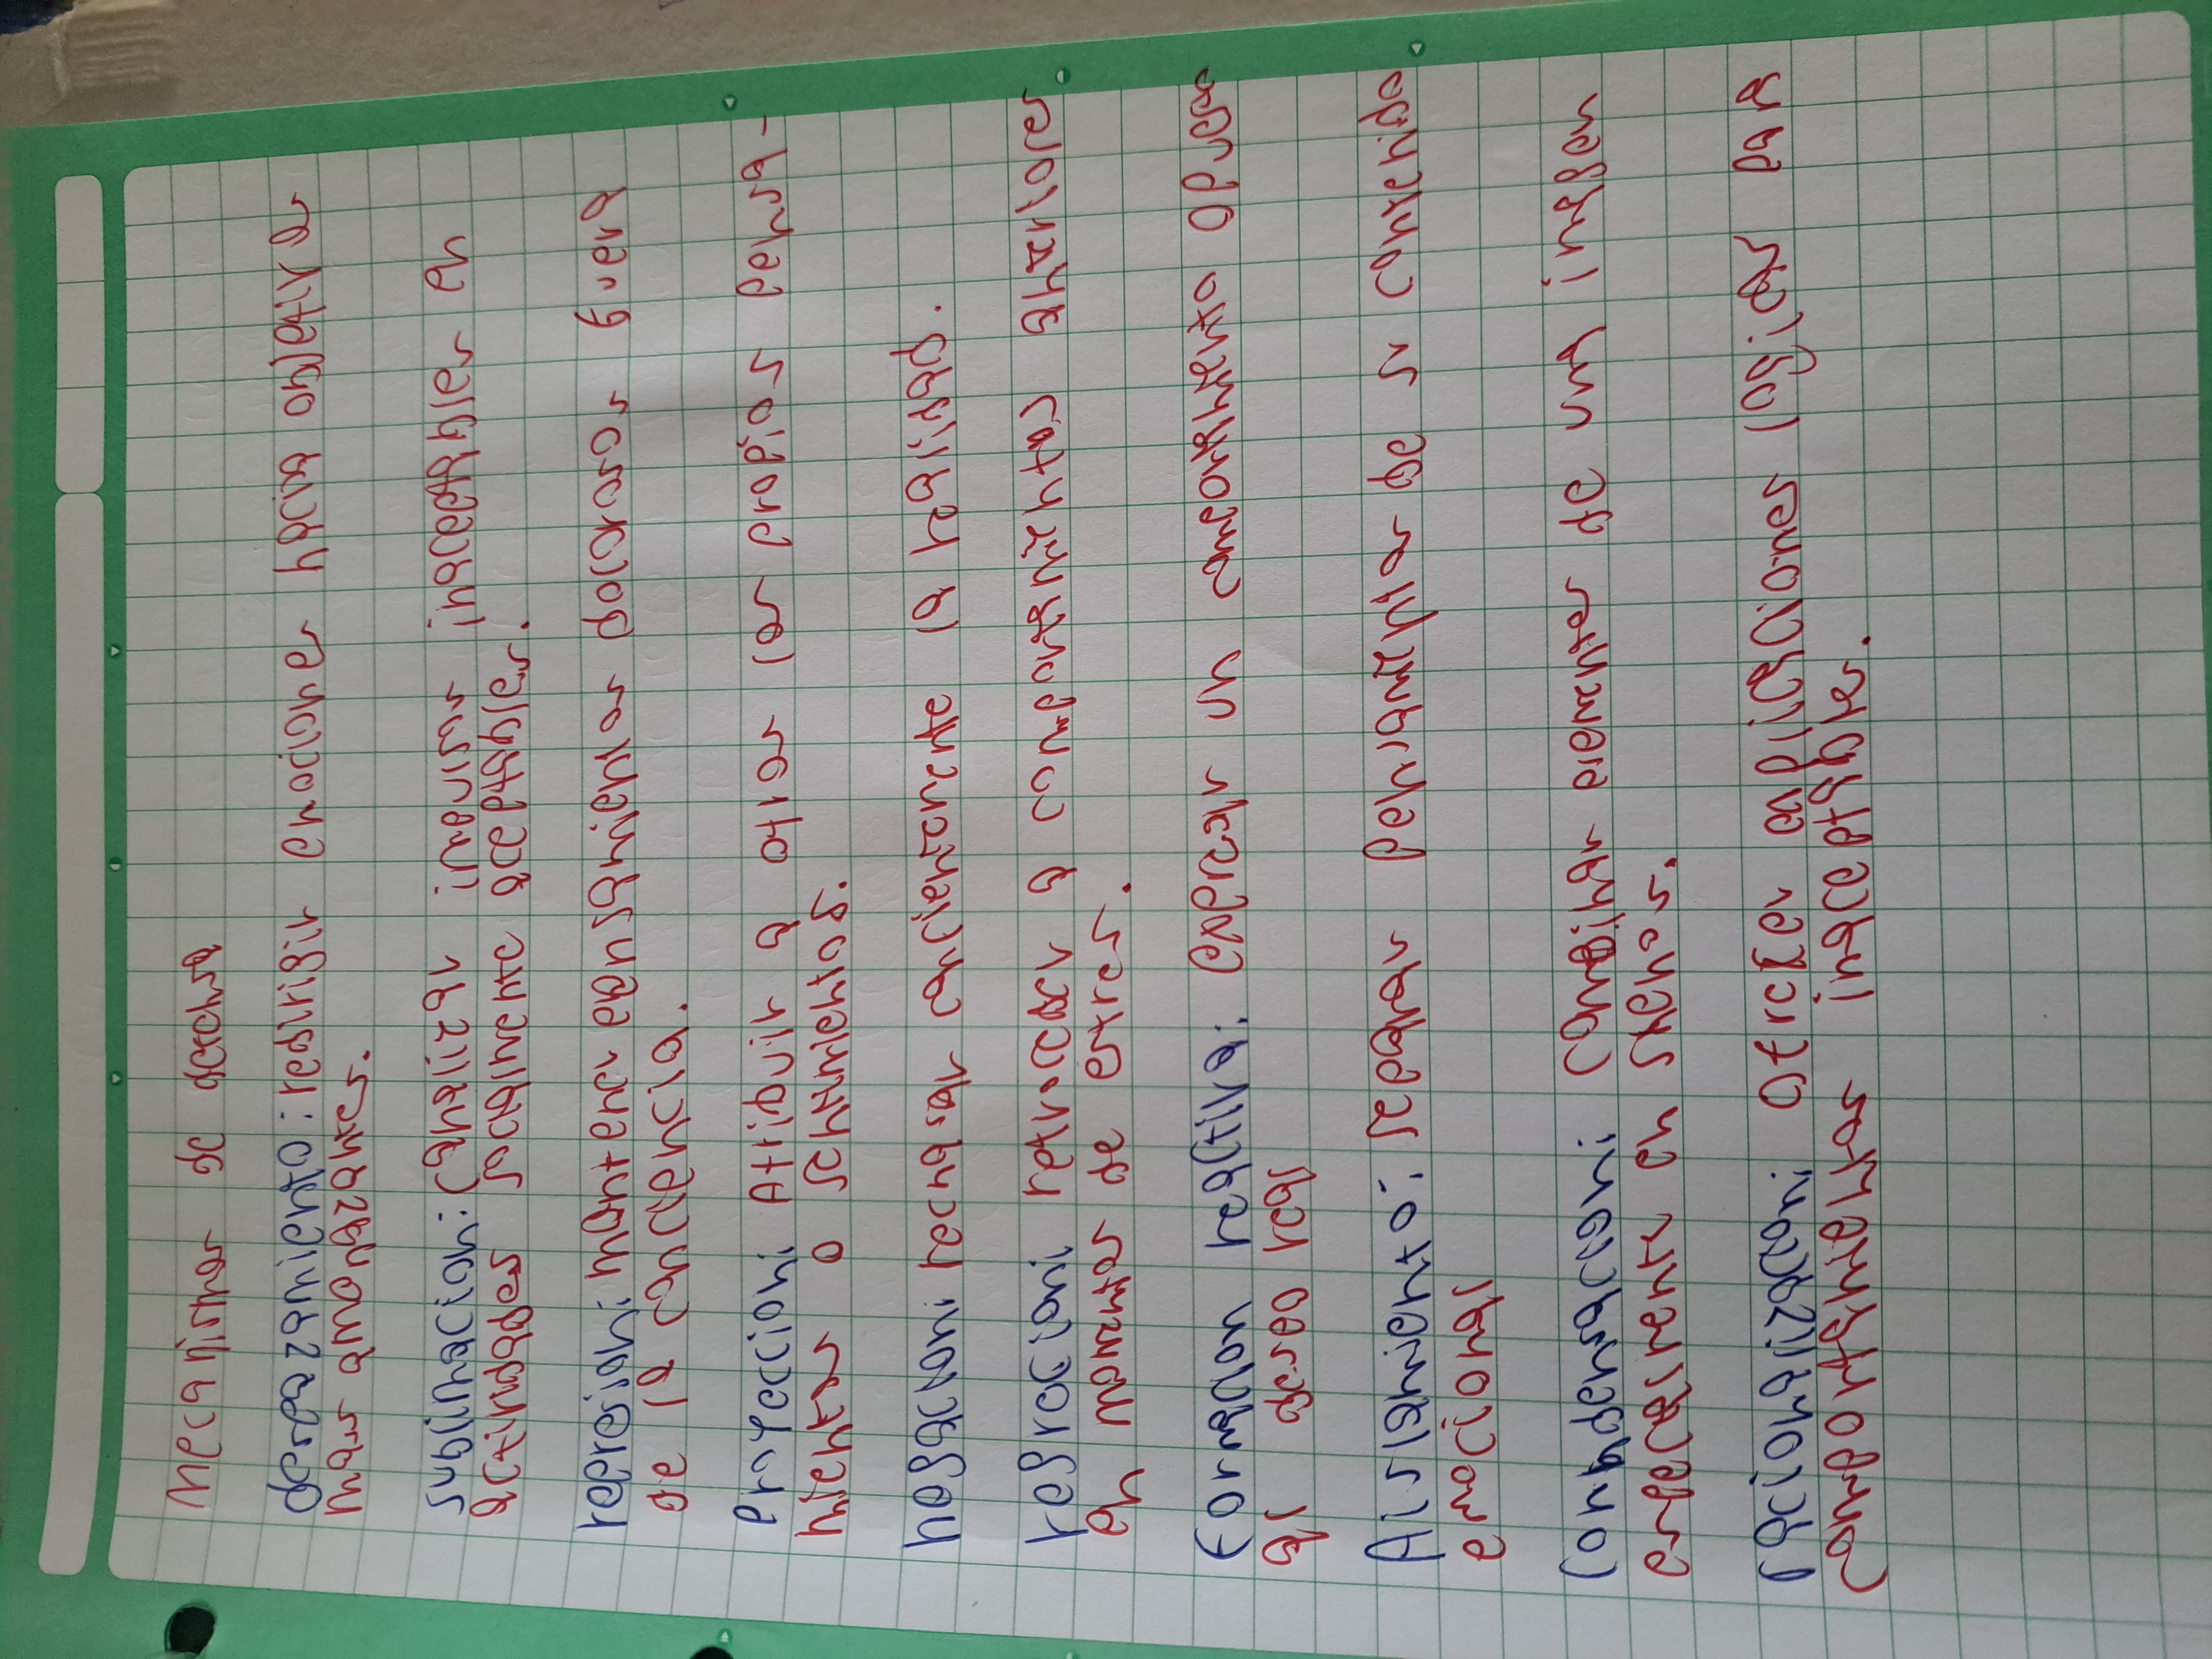 Mecanismos de defensa
desplazamiento: redirigir emociones hacia objetos
mas amanazantes.
sublimacion: Canalizar impulsos inaceptables en
actividades socialmente aceptables.
represion: mantener pensamientos dolorosos fuera
de la conciencia.
proyeccion: Atribuir a otros los propios pensa-
mientos o sentimientos.
negacion: negarse a reconocer la realidad.
regresion: retroceder a comportamientos anteriores
en momentos de estres.
Formacion reactiva: Expresar un comportamiento opuesto
al deseo real
Aislamiento: Separar pensamientos de su contenido
emocional
Compensacion: Cambiar elementos de una imagen
por elementos en sueños.
racionalizacion: Ofrecer explicaciones logicas para
comportamientos inaceptables.